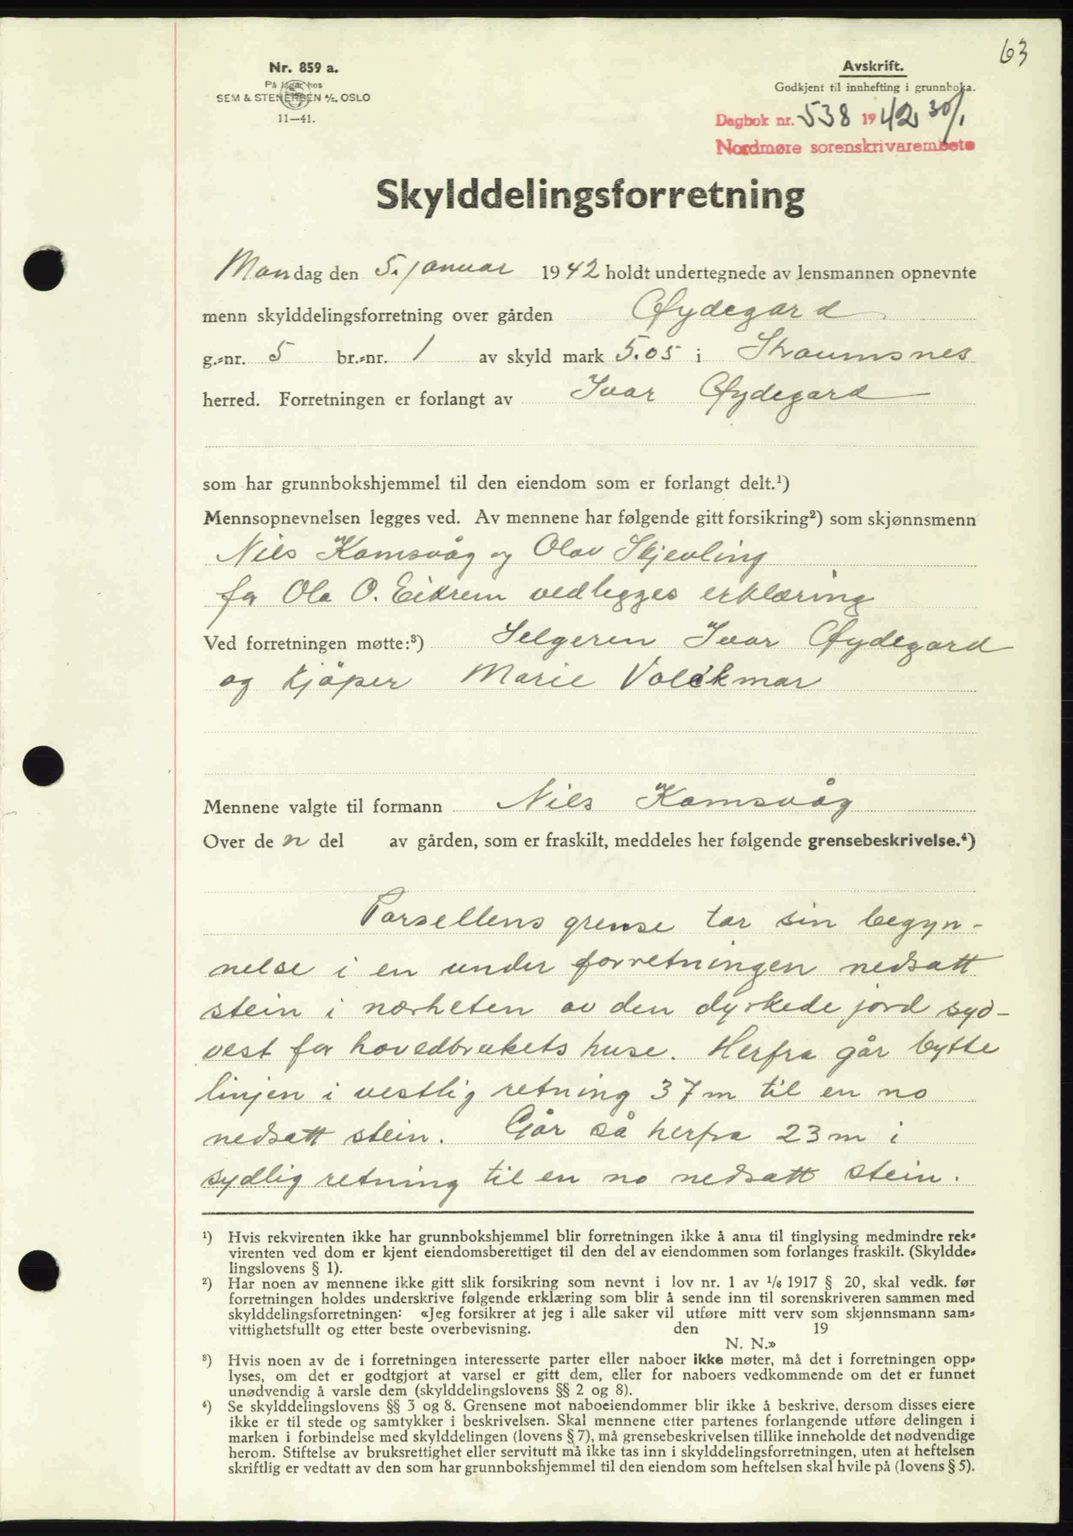 63
Nr. 859 a.
På lager hos
SEM & STENERSEN A/S, OSLO
11—41.
Avskrift.
Godkjent til innhefting i grunnboka.
Dagbok nr. 538 1942 30/1
Nordmøre sorenskrivarembete
Skylddelingsforretning
Mandag den 5. januar 1942 holdt undertegnede av lensmannen opnevnte
menn skylddelingsforretning over gården Øydegard
g.-nr. 5 br.-nr. 1 av skyld mark 5.05 i Straumsnes
herred. Forretningen er forlangt av Ivar Øydegard
som har grunnbokshjemmel til den eiendom som er forlangt delt.¹)
Mennsopnevnelsen legges ved. Av mennene har følgende gitt forsikring²) som skjønnsmenn
Nils Kamsvåg og Olav Skjevling
for Ola O. Eikrem vedlegges erklæring
Ved forretningen møtte:³) Selgeren Ivar Øydegard
og kjöper Marie Volckmar
Mennene valgte til formann Nils Kamsvåg
Over de n del av gården, som er fraskilt, meddeles her følgende grensebeskrivelse.⁴)
Parsellens grense tar sin begyn-
nelse i en under forretningen nedsatt
stein i nærheten av den dyrkede jord syd-
vest for hovedbrukets huse. Herfra går bytte
linjen i vestlig retning 37 m til en no
nedsatt stein. Går så herfra 23 m i
sydlig retning til en no nedsatt stein.
¹) Hvis rekvirenten ikke har grunnbokshjemmel blir forretningen ikke å anta til tinglysing medmindre rek-
virenten ved dom er kjent eiendomsberettiget til den del av eiendommen som forlanges fraskilt. (Skyldde-
lingslovens § 1).
²) Har noen av mennene ikke gitt slik forsikring som nevnt i lov nr. 1 av 1/6 1917 § 20, skal vedk. før
forretningen holdes underskrive følgende erklæring som blir å sende inn til sorenskriveren sammen med
skylddelingsforretningen: «Jeg forsikrer at jeg i alle saker vil utføre mitt verv som skjønnsmann sam-
vittighetsfullt og etter beste overbevisning. den 19
N. N.»
³) Hvis noen av de i forretningen interesserte parter eller naboer ikke møter, må det i forretningen opp-
lyses, om det er godtgjort at varsel er gitt dem, eller for naboers vedkommende om det er funnet
unødvendig å varsle dem (skylddelingslovens §§ 2 og 8).
⁴) Se skylddelingslovens §§ 3 og 8. Grensene mot naboeiendommer blir ikke å beskrive, dersom disses eiere
ikke er til stede og samtykker i beskrivelsen. Skal mennene etter partenes forlangende utføre delingen i
marken i forbindelse med skylddelingen (lovens § 7), må grensebeskrivelsen tillike inneholde det nødvendige
herom. Stiftelse av bruksrettighet eller servitutt må ikke tas inn i skylddelingsforretningen, uten at heftelsen
skriftlig er vedtatt av den som har grunnbokshjemmel til den eiendom som heftelsen skal hvile på (lovens § 5).